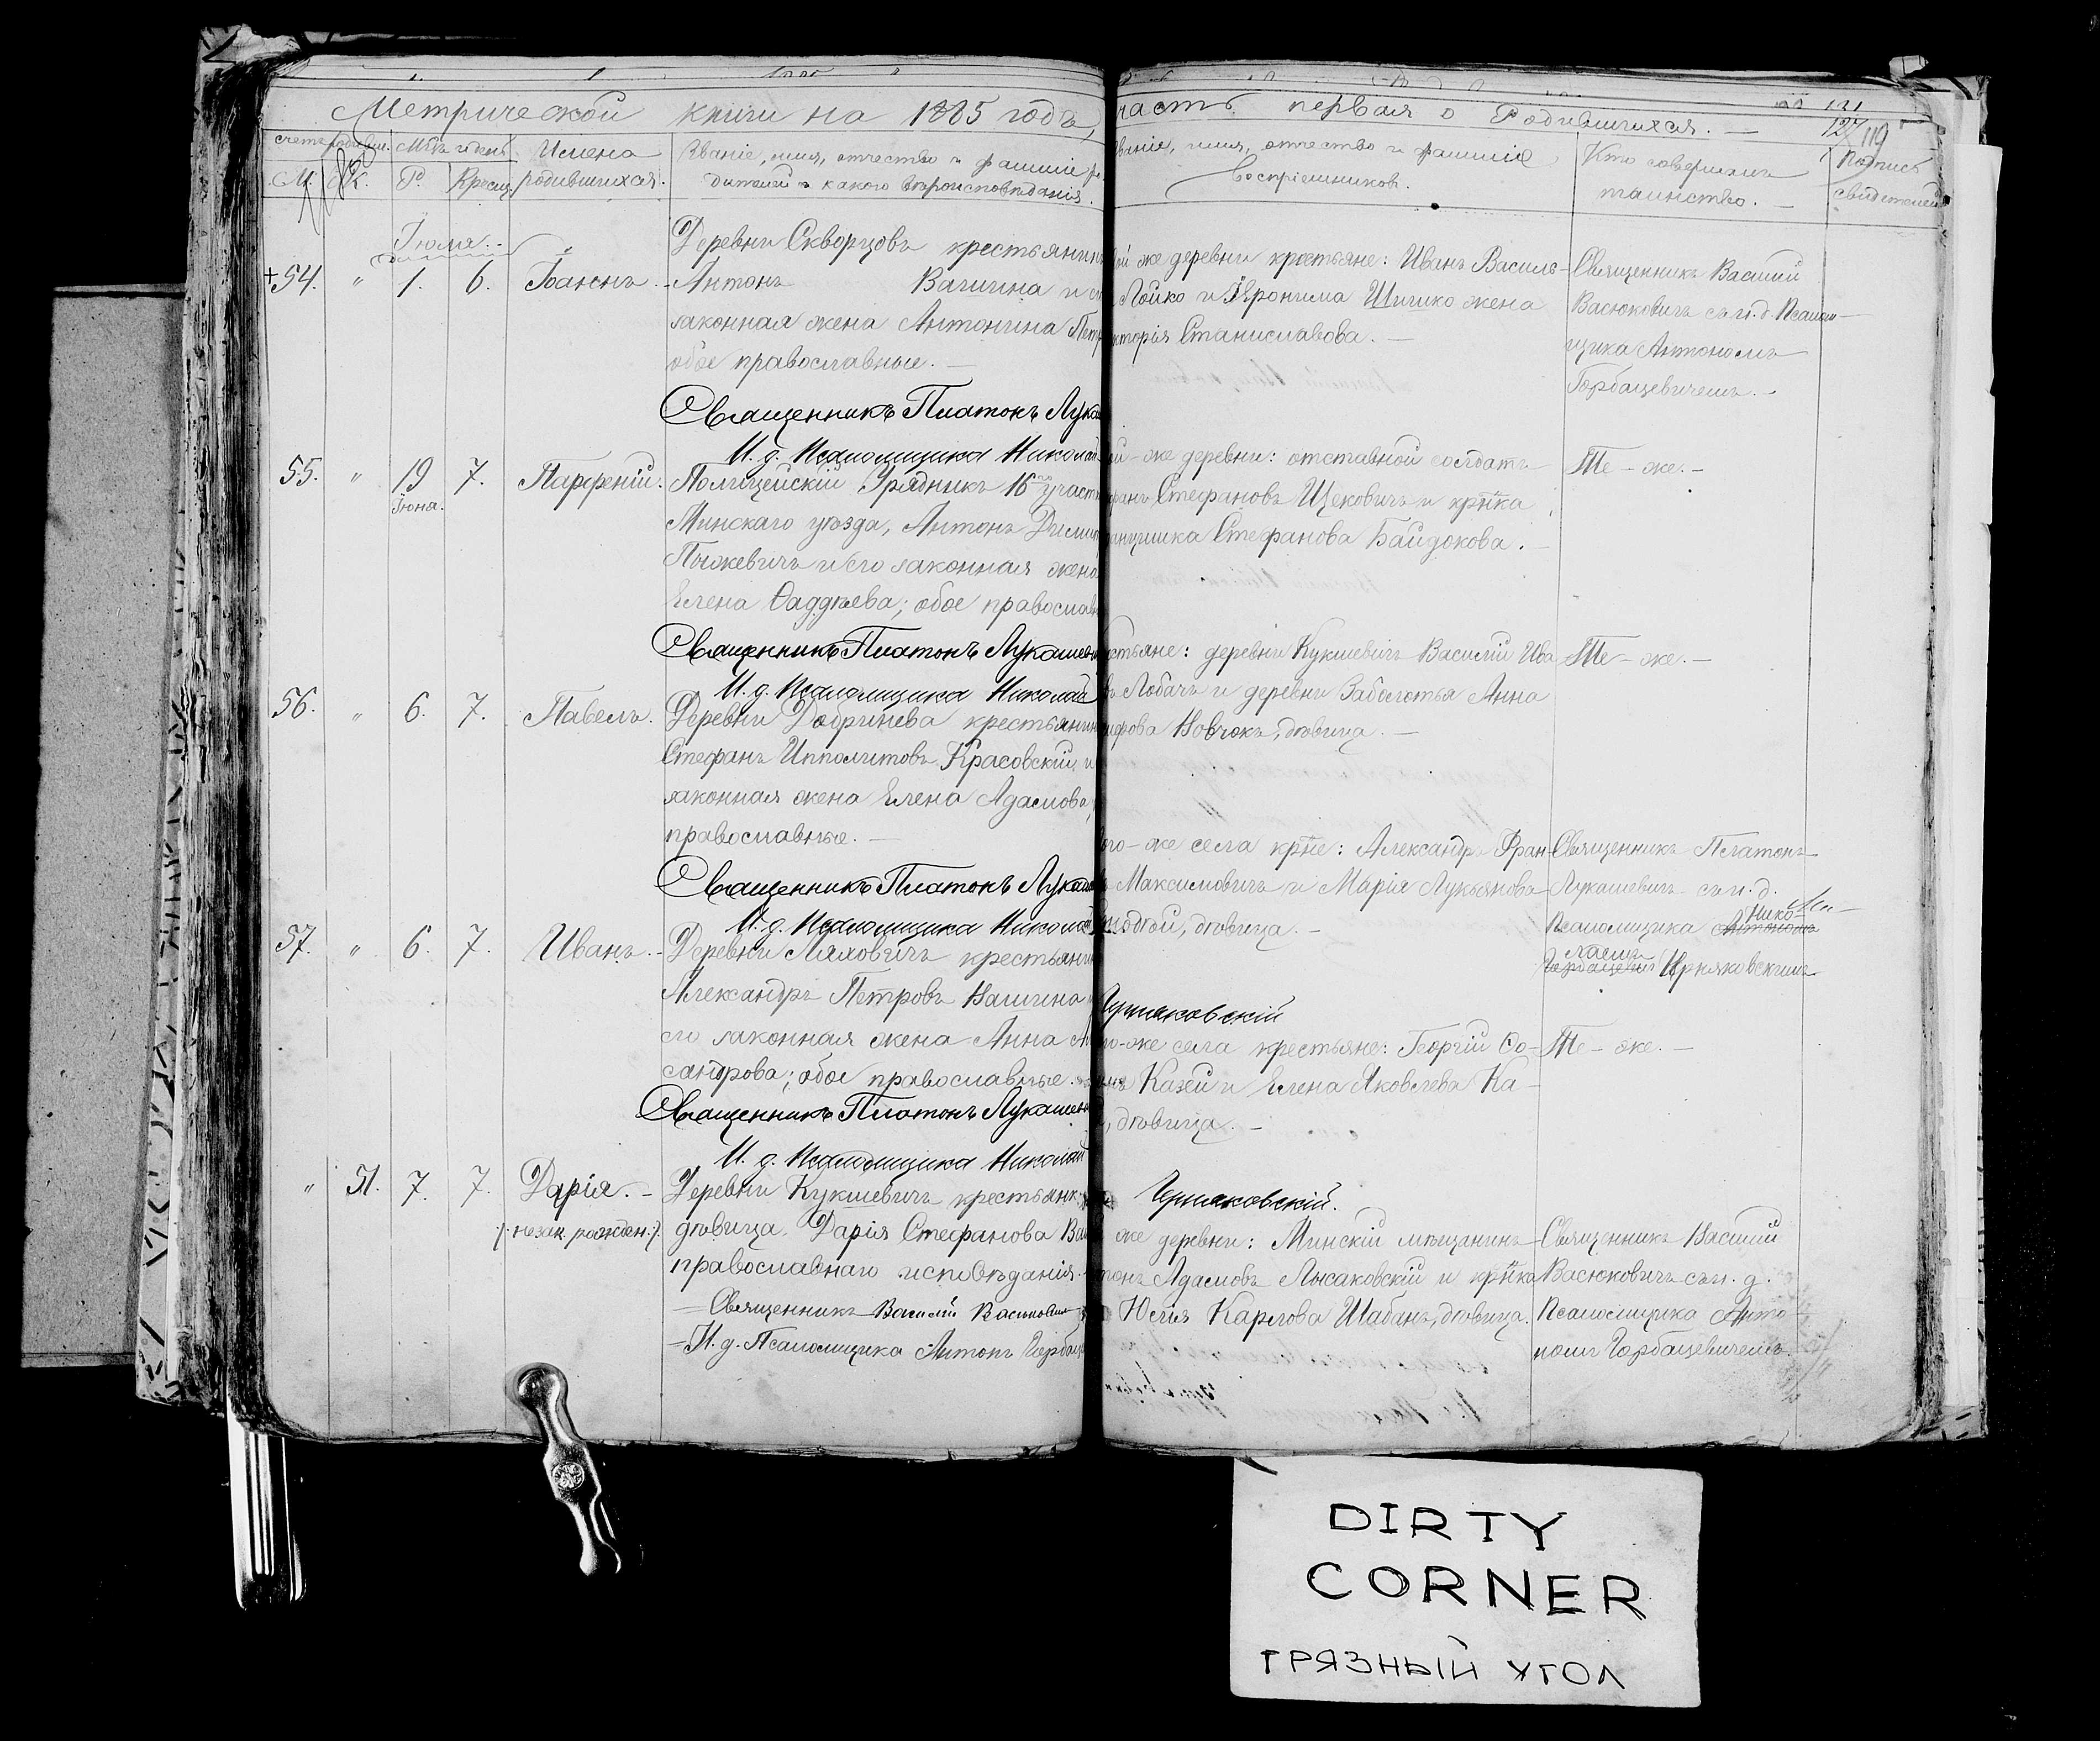 Метрической книги на 1885 годъ,
часть первая о Родившихся.
131
127
119
Счетъ родивш.
М.
Ж.
Мѣс. и день
Р.
Крещ.
Имена
родившихся.
Званіе, имя, отчество и фамилія ро-
дителей и какого вѣроисповѣданія.
Званіе, имя, отчество и фамилія
воспріемниковъ.
Кто совершалъ
таинство.
Подпись
свидѣтелей
Іюля.
+54. " 1. 6. Іоаннъ.
Деревни Скворцовъ крестьянинъ
Антонъ Вагина и
законная жена Антонина Петр
обое православные.
Священникъ Платонъ Лука
И. д. Псаломщика Николай
ой же деревни крестьяне: Иванъ Василь-
Лойко и Іеронима Шишко жена
кторія Станиславова.
Священникъ Василій
Васюковичъ съ и. д. Псалом-
щика Антономъ
Горбацевичемъ.
55. " 19 7. Парфеній.
Іюня.
Полицейскій Урядникъ 16го участ
Минскаго уѣзда, Антонъ Дими
Пыжевичъ и его законная жена
Елена Ѳаддѣева; обое православ
Священникъ Платонъ Лукашев
И. д. Псаломщика Николай
ой-же деревни: отставной солдатъ
Стефановъ Щековичъ и крнка
нцишка Стефанова Байдокова.
Те-же.-
56. " 6. 7. Павелъ.
Деревни Добринева крестьянин
Стефанъ Ипполитовъ Красовскій, и
законная жена Елена Адамова,
православные.
Священникъ Платонъ Лукаш
И. д. Псаломщика Никола
стьяне: деревни Кукшевичъ Василій Ива
въ Лобачъ и деревни Заболотья Анна
ифрова Новчокъ, дѣвица.
Те-же.-
57. " 6. 7. Иванъ.
Деревни Ляховичъ крестьяни
Александръ Петровъ Вашина
его законная жена Анна А
сандрова; обое православные.
Священникъ Платонъ Лукашев
И. д. Псаломщика Николай
го-же села крне: Александръ Фран-
Максимовичъ и Марія Лукьянова
дѣвица.
Священникъ Платонъ
Лукашевичъ съ и. д.
Псаломщика Антономъ Нико-
лаемъ
Горбацевич Черняковскимъ
Черняковскій
" 51. 7. 7. Дарія.
/: незак. рожден.:/.
Деревни Кукшевичъ крестьянк
дѣвица, Дарія Стефанова Ва
православнаго исповѣданія.
Священникъ Василій Васюкович
И. д. Псаломщика Антонъ Горбац
го-же села крестьяне: Георгій Со-
Казей и Елена Яковлева Ка-
, дѣвица.
Те-же.
Черняковскій.
же деревни: Минскій мѣщанинъ
тонъ Адамовъ Лысаковскій и крнка
Юлія Карлова Шабанъ, дѣвица.
Священникъ Василій
Васюковичъ съ и. д.
Псаломщика Анто-
номъ Горбацевичемъ.
DIRTY
CORNER
ГРЯЗНЫЙ УГОЛ